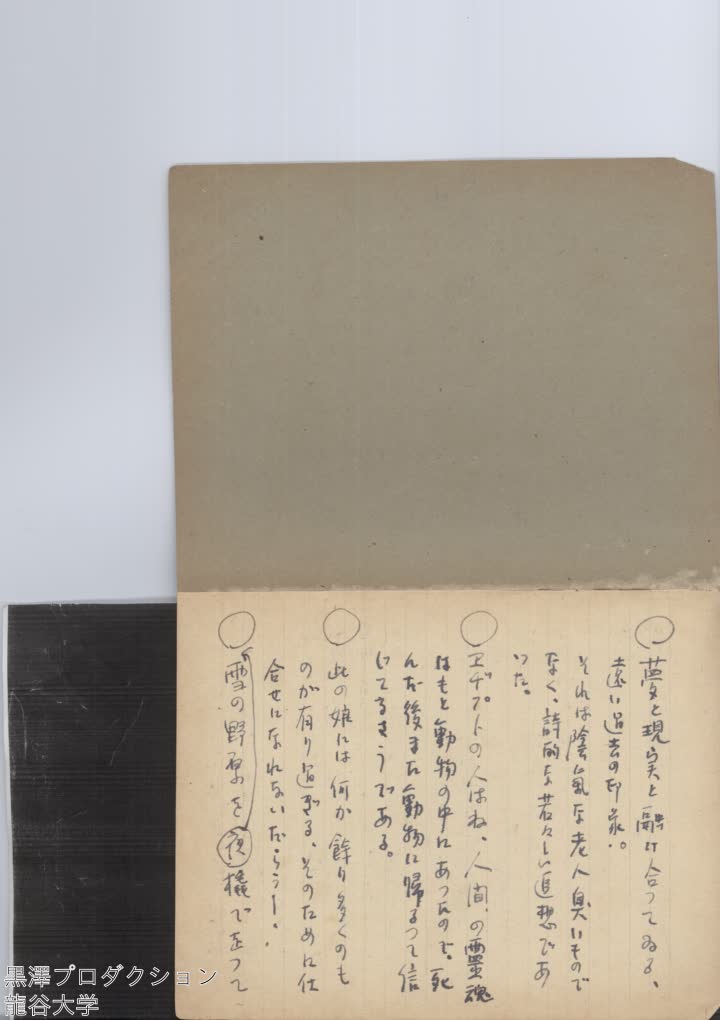 夢と現実と融け合つてゐる、
遠い過去の印象。
それは陰気な老人臭いもので
なく、詩的な若々しい追想であ
つた。
エヂプトの人はね、人間の霊魂
はもと動物の中にあつたので、死
んだ後また動物に帰るつて信
じてるさうである。
此の娘には何か餘り多くのも
のが有り過ぎる、そのために仕
合せになれないだらう―.
雪の野原を夜橇で走つて
黒澤プロダクション
龍谷大学